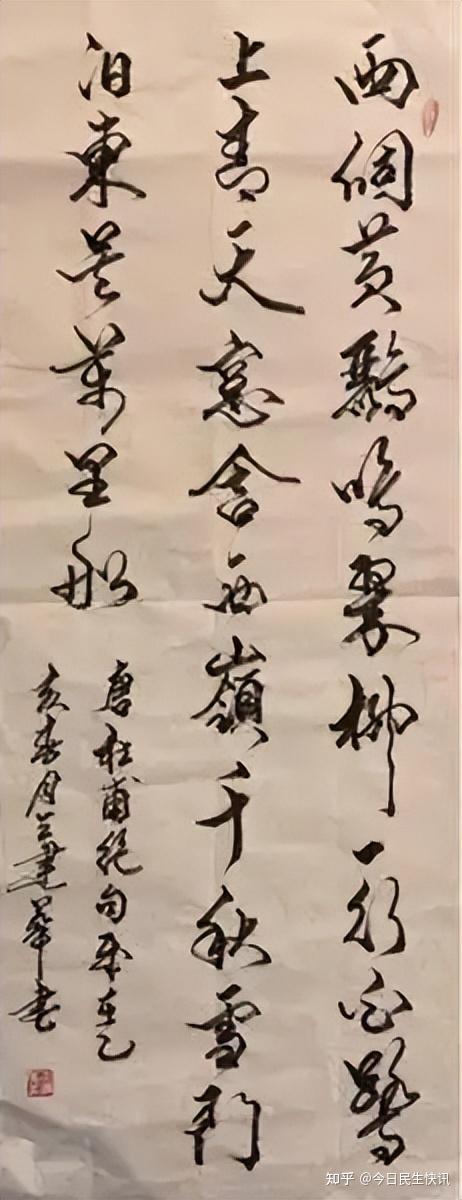 两個黄鸝鳴翠柳一行白鷺
上青天窓含西嶺千秋雪門
泊東吴萬里船
唐杜甫絕句歲在己
亥春月建華書
知乎 @今日民生快讯